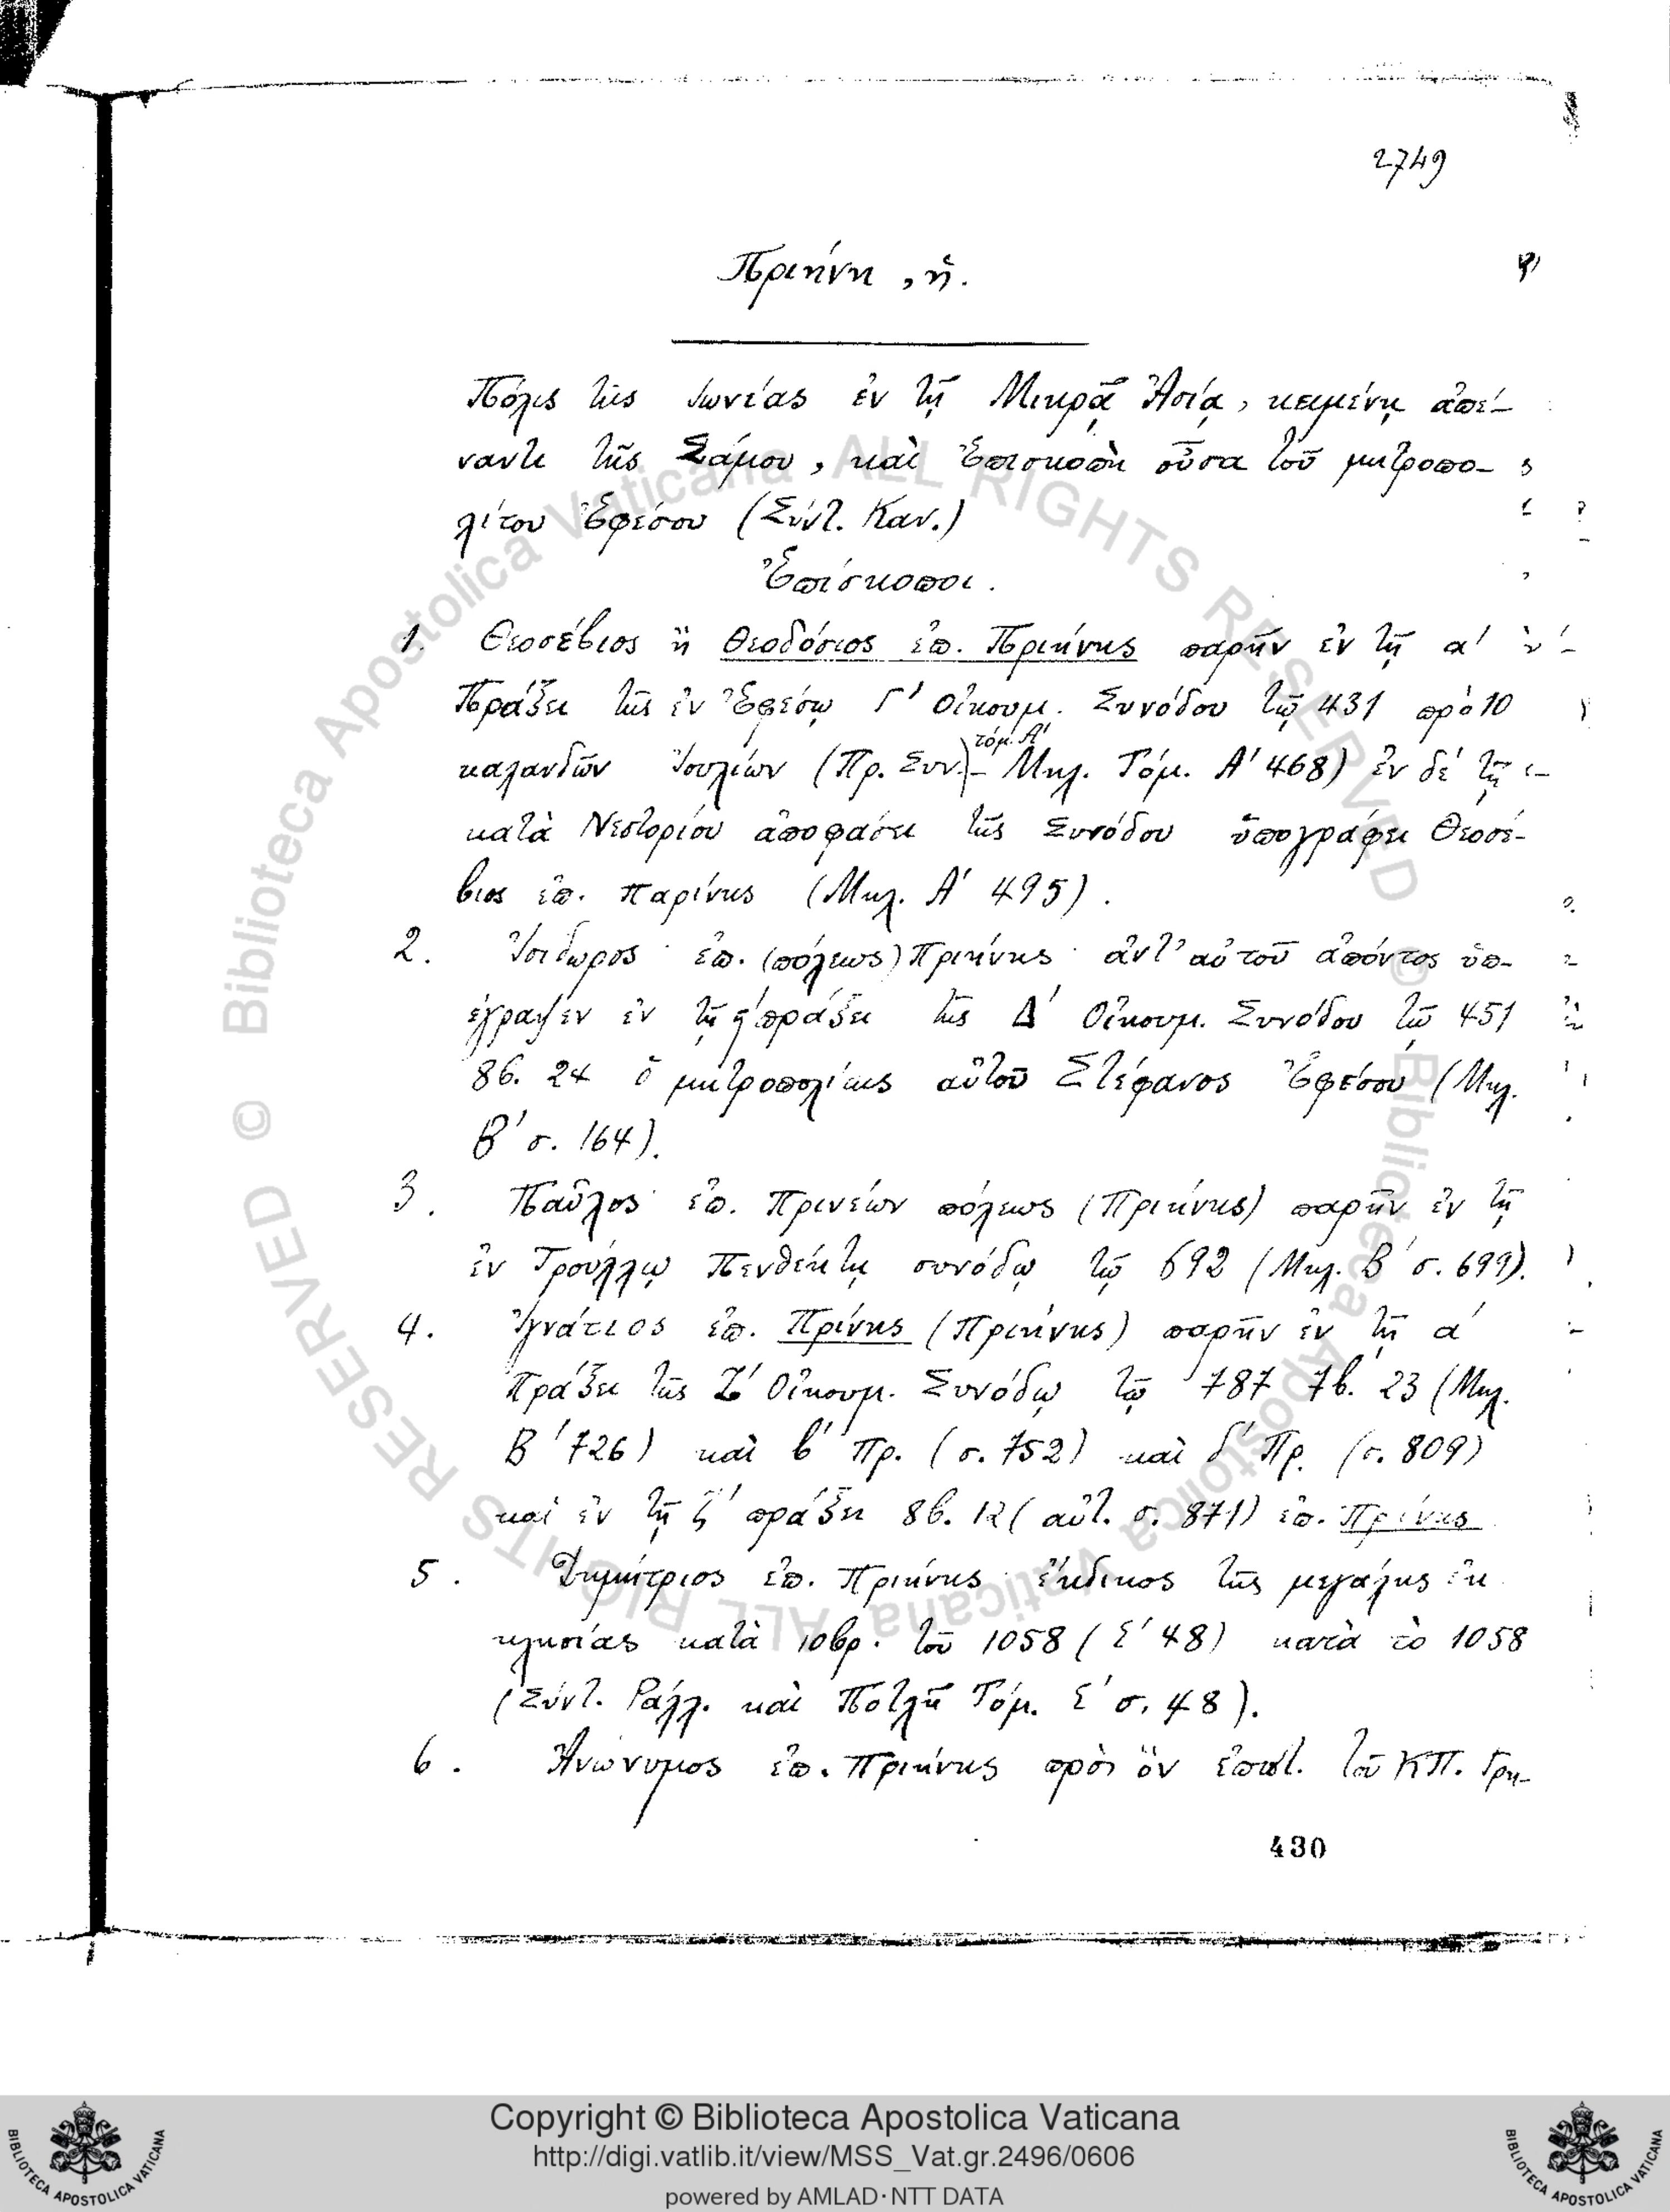 2749
Πριήνη, ἡ.
Πόλις τῆς Ἰωνίας ἐν τῇ Μικρᾷ Ἀσίᾳ, κειμένη ἀπέ-
ναντι τῆς Σάμου, καὶ Ἐπισκοπὴ οὖσα τοῦ μητροπο-
λίτου Ἐφέσου (Σύντ. Καν.)
Ἐπίσκοποι.
1. Θεοσέβιος ἢ Θεοδόσιος ἐπ. Πριήνης παρῆν ἐν τῇ α'
Πράξει τῆς ἐν Ἐφέσῳ Γ' Οἰκουμ. Συνόδου τῷ 431 πρὸ 10
καλανδῶν Ἰουλίων (Πρ. Συν. τόμ. Α' - Μηλ. Τόμ. Α' 468) ἐν δὲ τῇ
κατὰ Νεστορίου ἀποφάσει τῆς Συνόδου ὑπογράφει Θεοσέ-
βιος ἐπ. Παρίνης (Μηλ. Α' 495).
2. Ἰσίδωρος ἐπ. (πόλεως) Πριήνης ἀντ' αὐτοῦ ἀπόντος ὑπ-
έγραψεν ἐν τῇ πράξει τῆς Δ' Οἰκουμ. Συνόδου τῷ 451
8β. 24 ὁ μητροπολίτης αὐτοῦ Στέφανος Ἐφέσου (Μηλ.
Β' σ. 164).
3. Παῦλος ἐπ. Πρινέων πόλεως (Πριήνης) παρῆν ἐν τῇ
ἐν Τρούλλῳ Πενθέκτῃ συνόδῳ τῷ 692 (Μηλ. Β' σ. 699).
4. Ἰγνάτιος ἐπ. Πρίνης (Πριήνης) παρῆν ἐν τῇ α'
Πράξει τῆς Ζ' Οἰκουμ. Συνόδῳ τῷ 787 7β. 23 (Μηλ.
Β' 726) καὶ β' Πρ. (σ. 752) καὶ δ' Πρ. (σ. 809)
καὶ ἐν τῇ ζ' πράξει 8β. 12 (αὐτ. σ. 871) ἐπ. Πρίνης
5. Δημήτριος ἐπ. Πριήνης ἔκδικος τῆς μεγάλης ἐκ
κλησίας κατὰ 10βρ. τοῦ 1058 (Ε' 48) κατὰ τὸ 1058
(Σύντ. Ράλλ. καὶ Ποτλῆ Τόμ. Ε' σ. 48).
6. Ἀνώνυμος ἐπ. Πριήνης πρὸς ὃν ἐπιστ. τοῦ ΚΠ. Γρη-
430
© Biblioteca Apostolica Vaticana ALL RIGHTS RESERVED © Biblioteca Apostolica Vaticana ALL RIGHTS RESERVED
Copyright © Biblioteca Apostolica Vaticana
http://digi.vatlib.it/view/MSS_Vat.gr.2496/0606
powered by AMLAD·NTT DATA
BIBLIOTECA APOSTOLICA VATICANA
BIBLIOTECA APOSTOLICA VATICANA